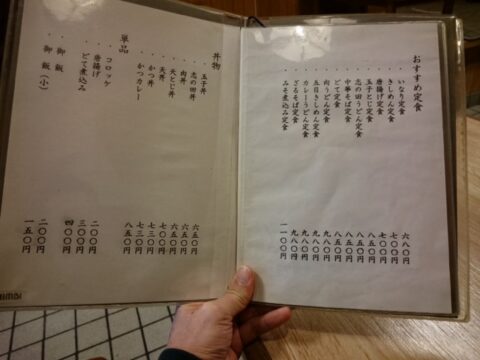 おすすめ定食
・いなり定食 六八〇円
・きしめん定食 七〇〇円
・唐揚げ定食 七〇〇円
・玉子とじ定食 八五〇円
・志の田うどん定食 八五〇円
・中華そば定食 八五〇円
・どて定食 八五〇円
・肉うどん定食
・五目きしめん定食 九八〇円
・カレーうどん定食 九八〇円
・ざるそば定食 九八〇円
・みそ煮込み定食 一一〇〇円
丼物
・玉子丼 六五〇円
・志の田丼 六五〇円
・肉丼 六五〇円
・天とじ丼 七〇〇円
・天丼 七三〇円
・かつ丼 七三〇円
・かつカレー 八五〇円
単品
・コロッケ 二〇〇円
・唐揚げ 三〇〇円
・どて煮込み 四〇〇円
・御飯 二〇〇円
・御飯(小) 一五〇円